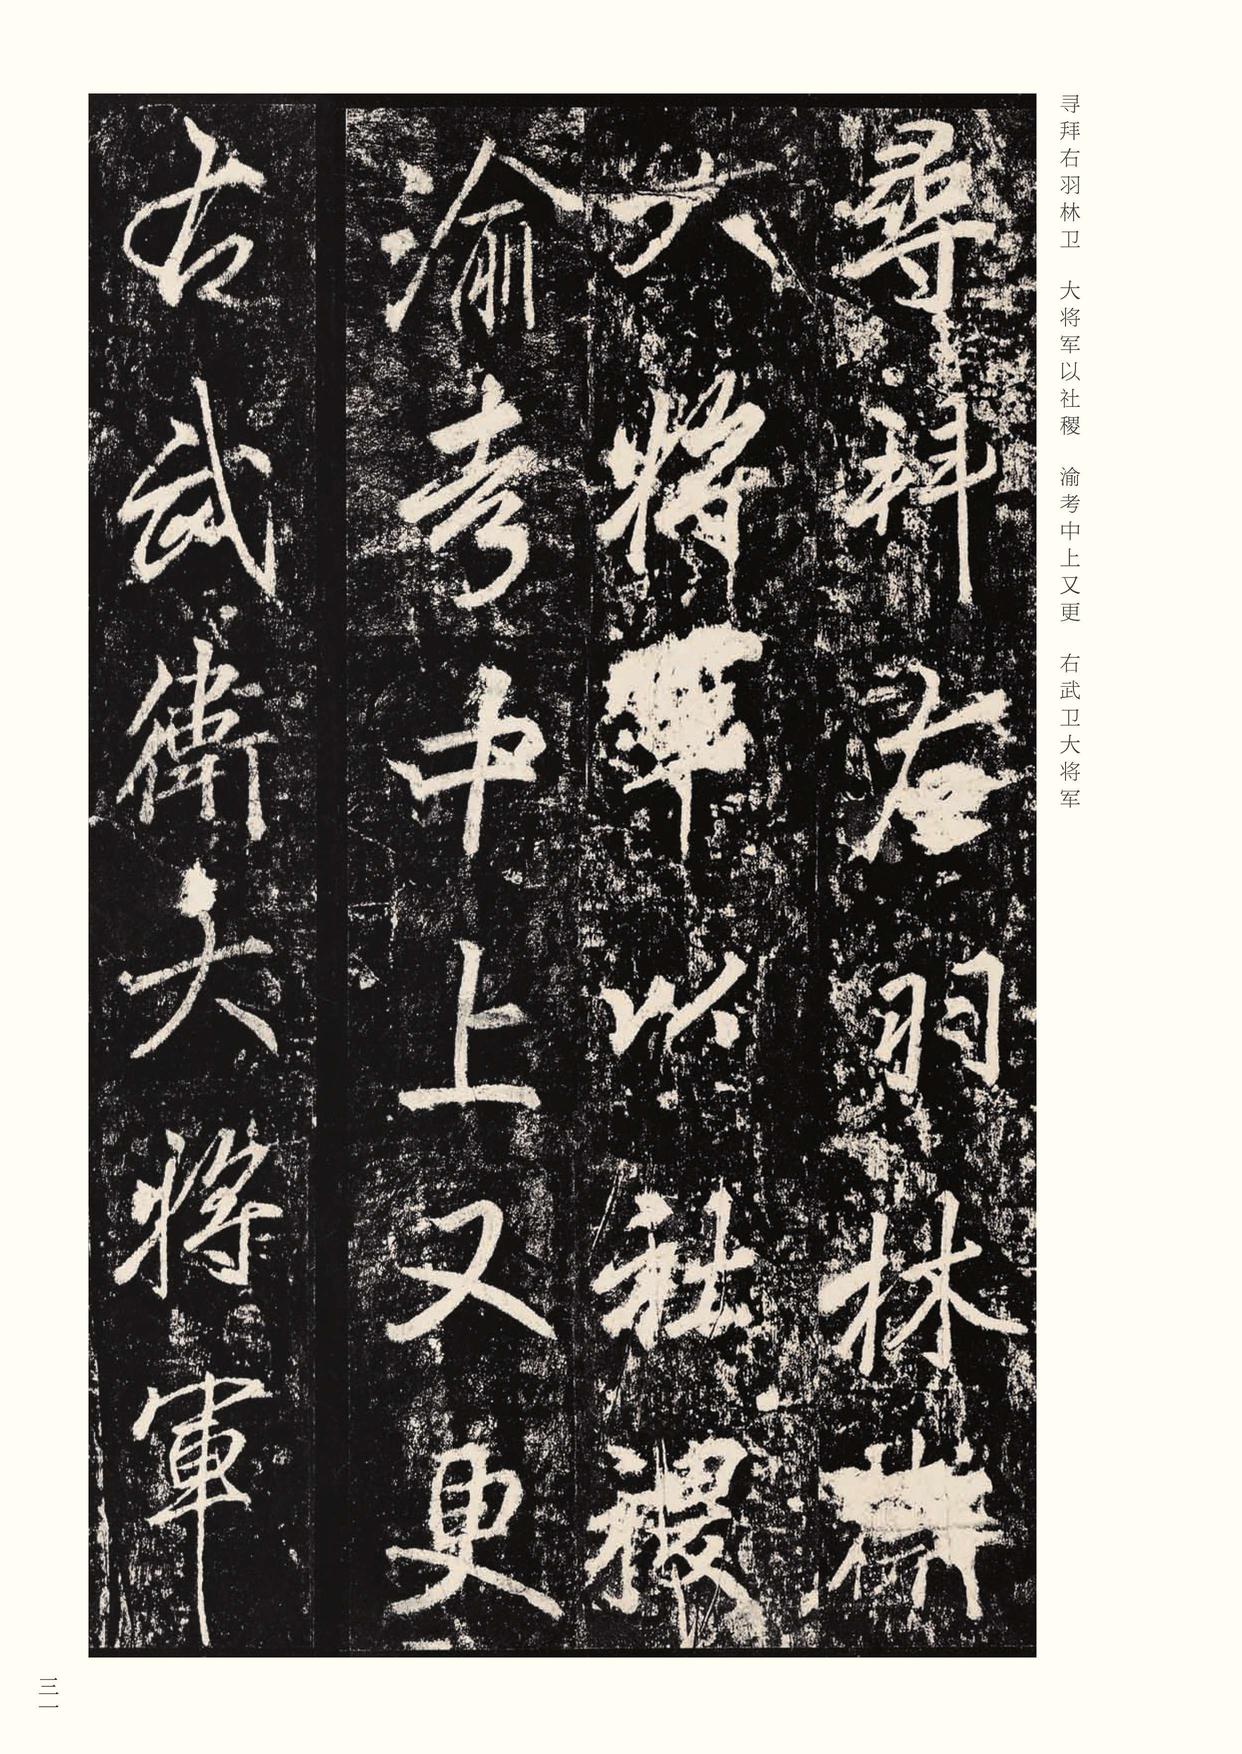 寻拜右羽林卫　大将军以社稷　渝考中上又更　右武卫大将军
尋拜右羽林衛
大將軍以社稷
渝考中上又更
右武衛大將軍
三一